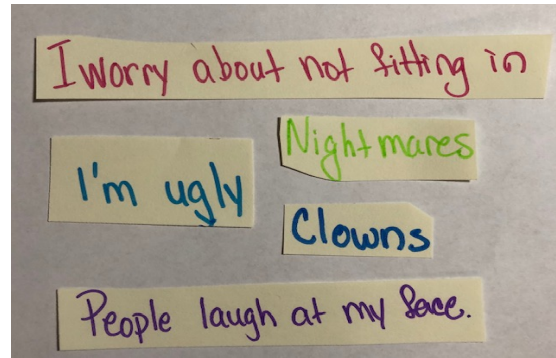 I worry about not fitting in
Nightmares
I'm ugly
Clowns
People laugh at my face.